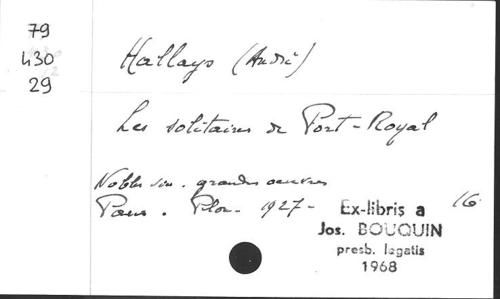 79
430
29
Hallays (André)
Les solitaires de Port-Royal
Nobles vies. grandes oeuvres
Paris. Plon - 1927 - 16
Ex-libris a
Jos. BOUQUIN
presb. legatis
1968